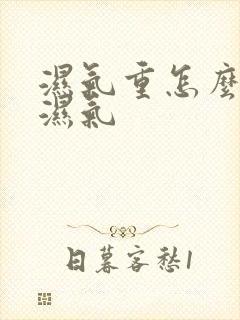 濕氣重怎麼
濕氣
日暮客愁1